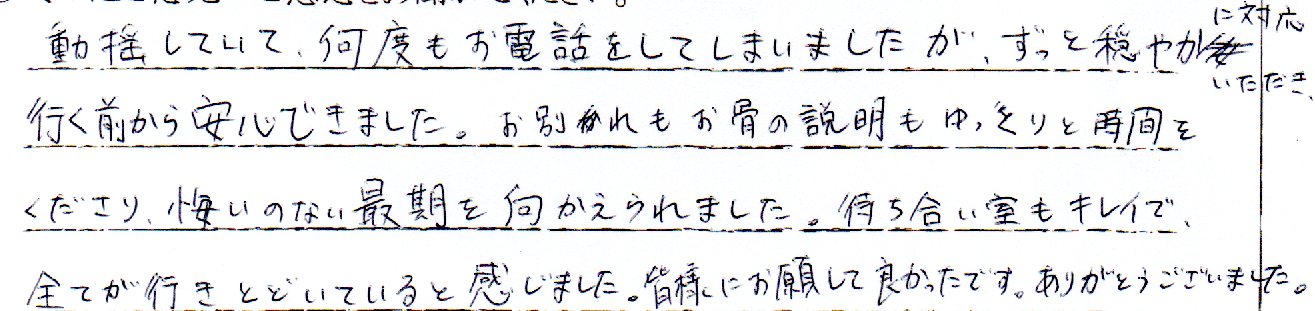 動揺していて、何度もお電話をしてしまいましたが、ずっと穏やかに対応いただき、
行く前から安心できました。お別れもお骨の説明もゆっくりと時間を
くださり、悔いのない最期を向かえられました。待ち合い室もキレイで、
全てが行きとどいていると感じました。皆様にお願して良かったです。ありがとうございました。